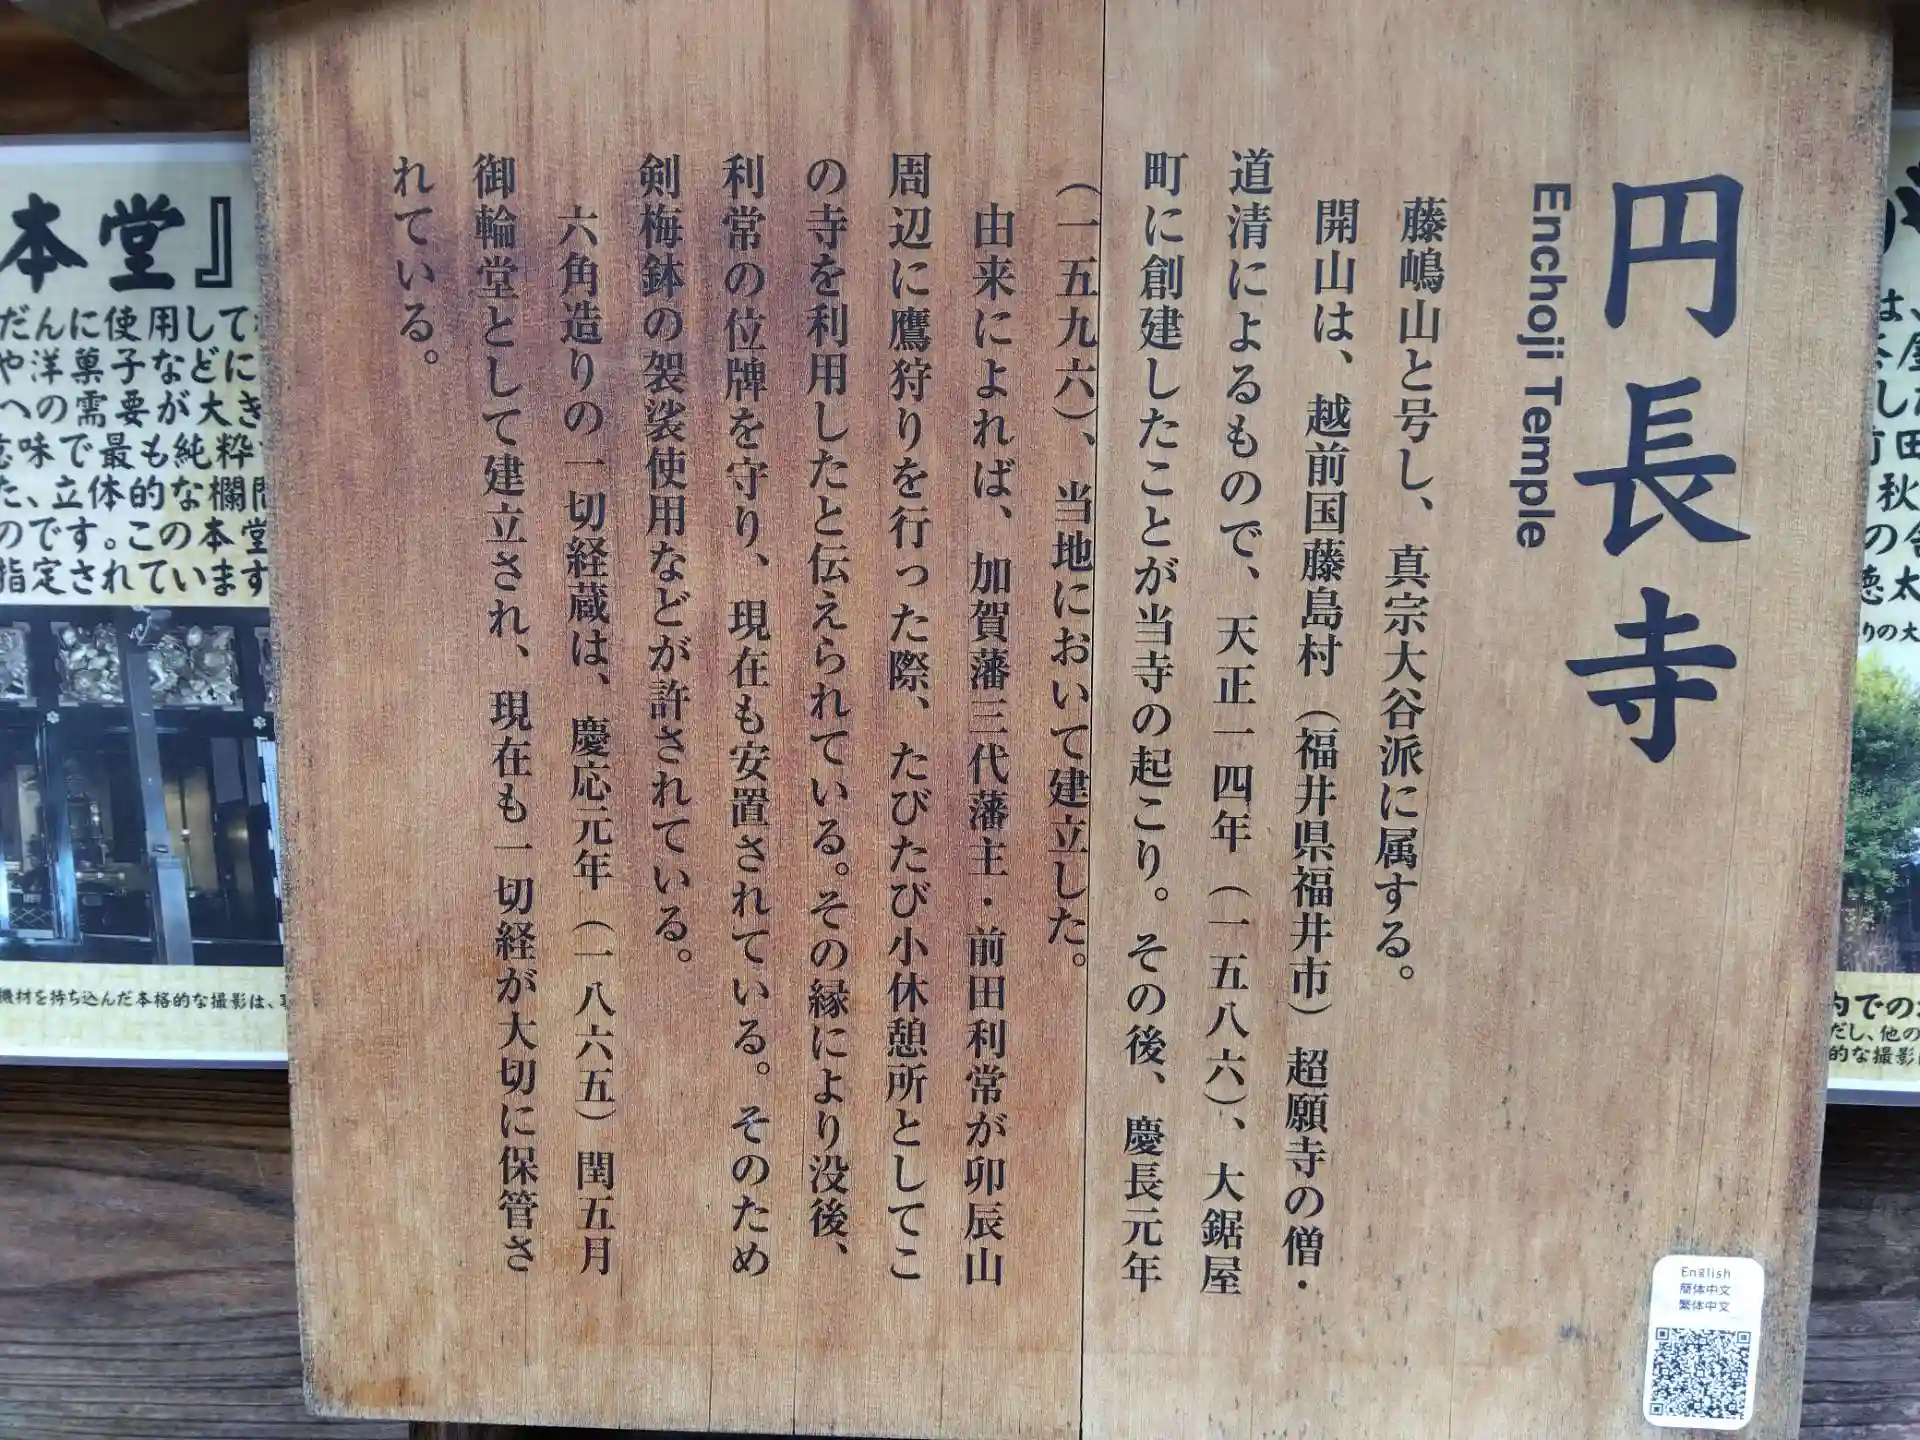 円長寺
Enchoji Temple
藤嶋山と号し、真宗大谷派に属する。
開山は、越前国藤島村（福井県福井市）超願寺の僧・
道清によるもので、天正一四年（一五八六）、大鋸屋
町に創建したことが当寺の起こり。その後、慶長元年
（一五九六）、当地において建立した。
由来によれば、加賀藩三代藩主・前田利常が卯辰山
周辺に鷹狩りを行った際、たびたび小休憩所としてこ
の寺を利用したと伝えられている。その縁により没後、
利常の位牌を守り、現在も安置されている。そのため
剣梅鉢の袈裟使用などが許されている。
六角造りの一切経蔵は、慶応元年（一八六五）閏五月
御輪堂として建立され、現在も一切経が大切に保管さ
れている。
English
簡体中文
繁体中文
本堂』
だんに使用して
や洋菓子などに
への需要が大き
味で最も純粋
た、立体的な欄間
のです。この本堂
指定されています
機材を持ち込んだ本格的な撮影は、
は、
屋
した
田
秋
の
太
りの大
内での
だし、他の
的な撮影